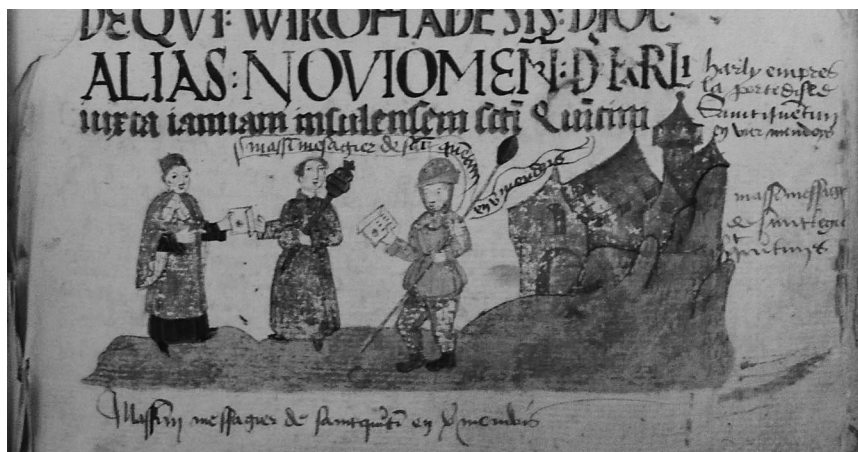 DEQVI: WIROMADESIS: DIOC·
ALIAS: NOVIOMEÑ: D: HARLI
iuxta ianuam insulensem scti Quintini
massin messagier de sait quentin
en v mendois
harly empres
la porte disle de
Saintt quetin
en vermendoys
massin messagr
de saint
quintin
Massin messagier de saintquiti en v mendois